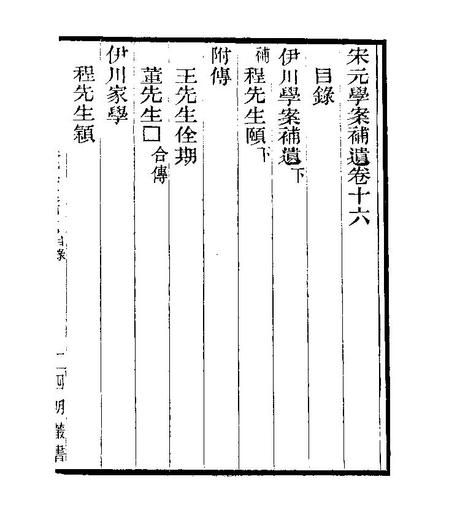 宋元學案補遺卷十六
目錄
伊川學案補遺下
補程先生頤下
附傳
王先生佺期
董先生□合傳
伊川家學
程先生穎
四明叢書